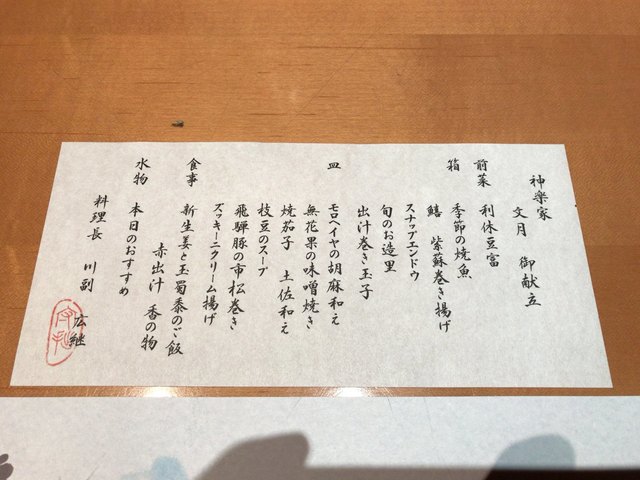 神楽家
文月　御献立
前菜　利休豆富
季節の焼魚
箱　鱚　紫蘇巻き揚げ
スナップエンドウ
旬のお造里
出汁巻き玉子
皿　モロヘイヤの胡麻和え
無花果の味噌焼き
焼茄子　土佐和え
枝豆のスープ
飛騨豚の市松巻き
ズッキーニクリーム揚げ
食事　新生姜と玉蜀黍のご飯
赤出汁　香の物
水物　本日のおすすめ
料理長　川副　広継